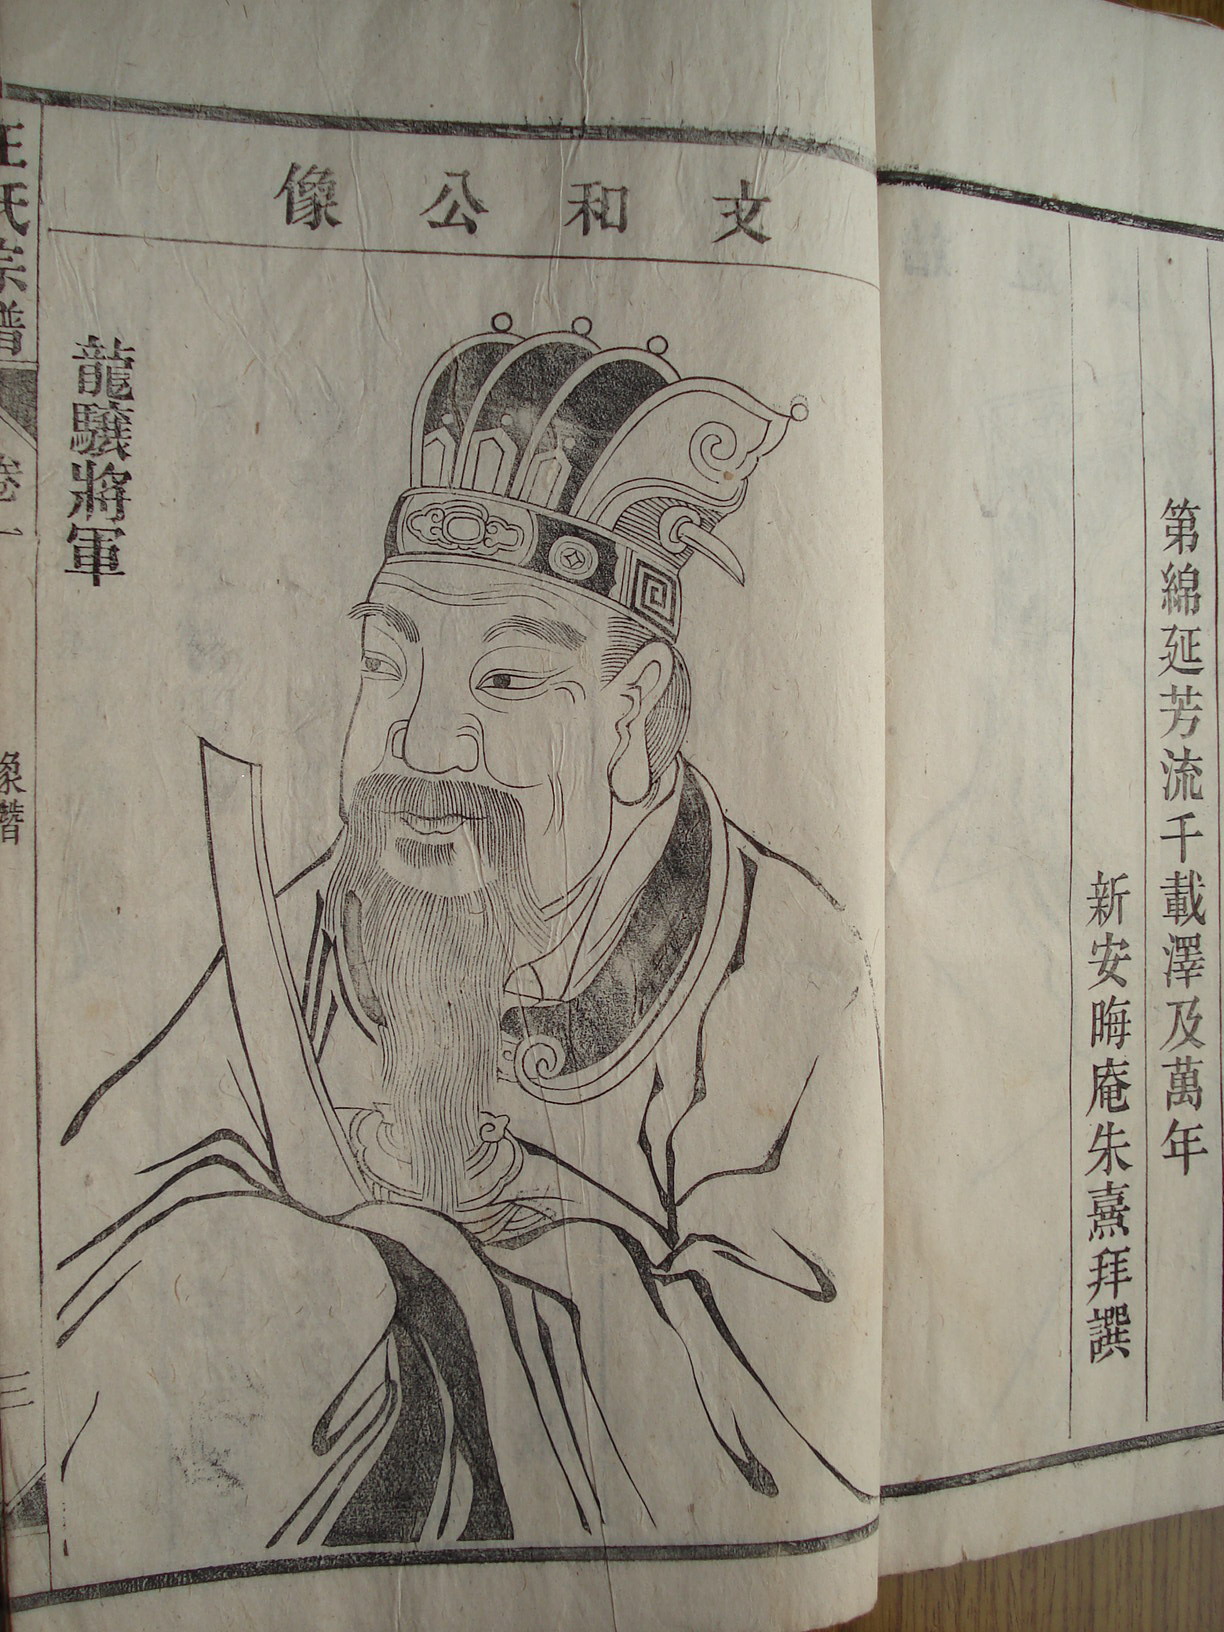 第綿延芳流千載澤及萬年
新安晦庵朱熹拜譔
文和公像
龍驤將軍
氏宗譜
卷一
像讚
三